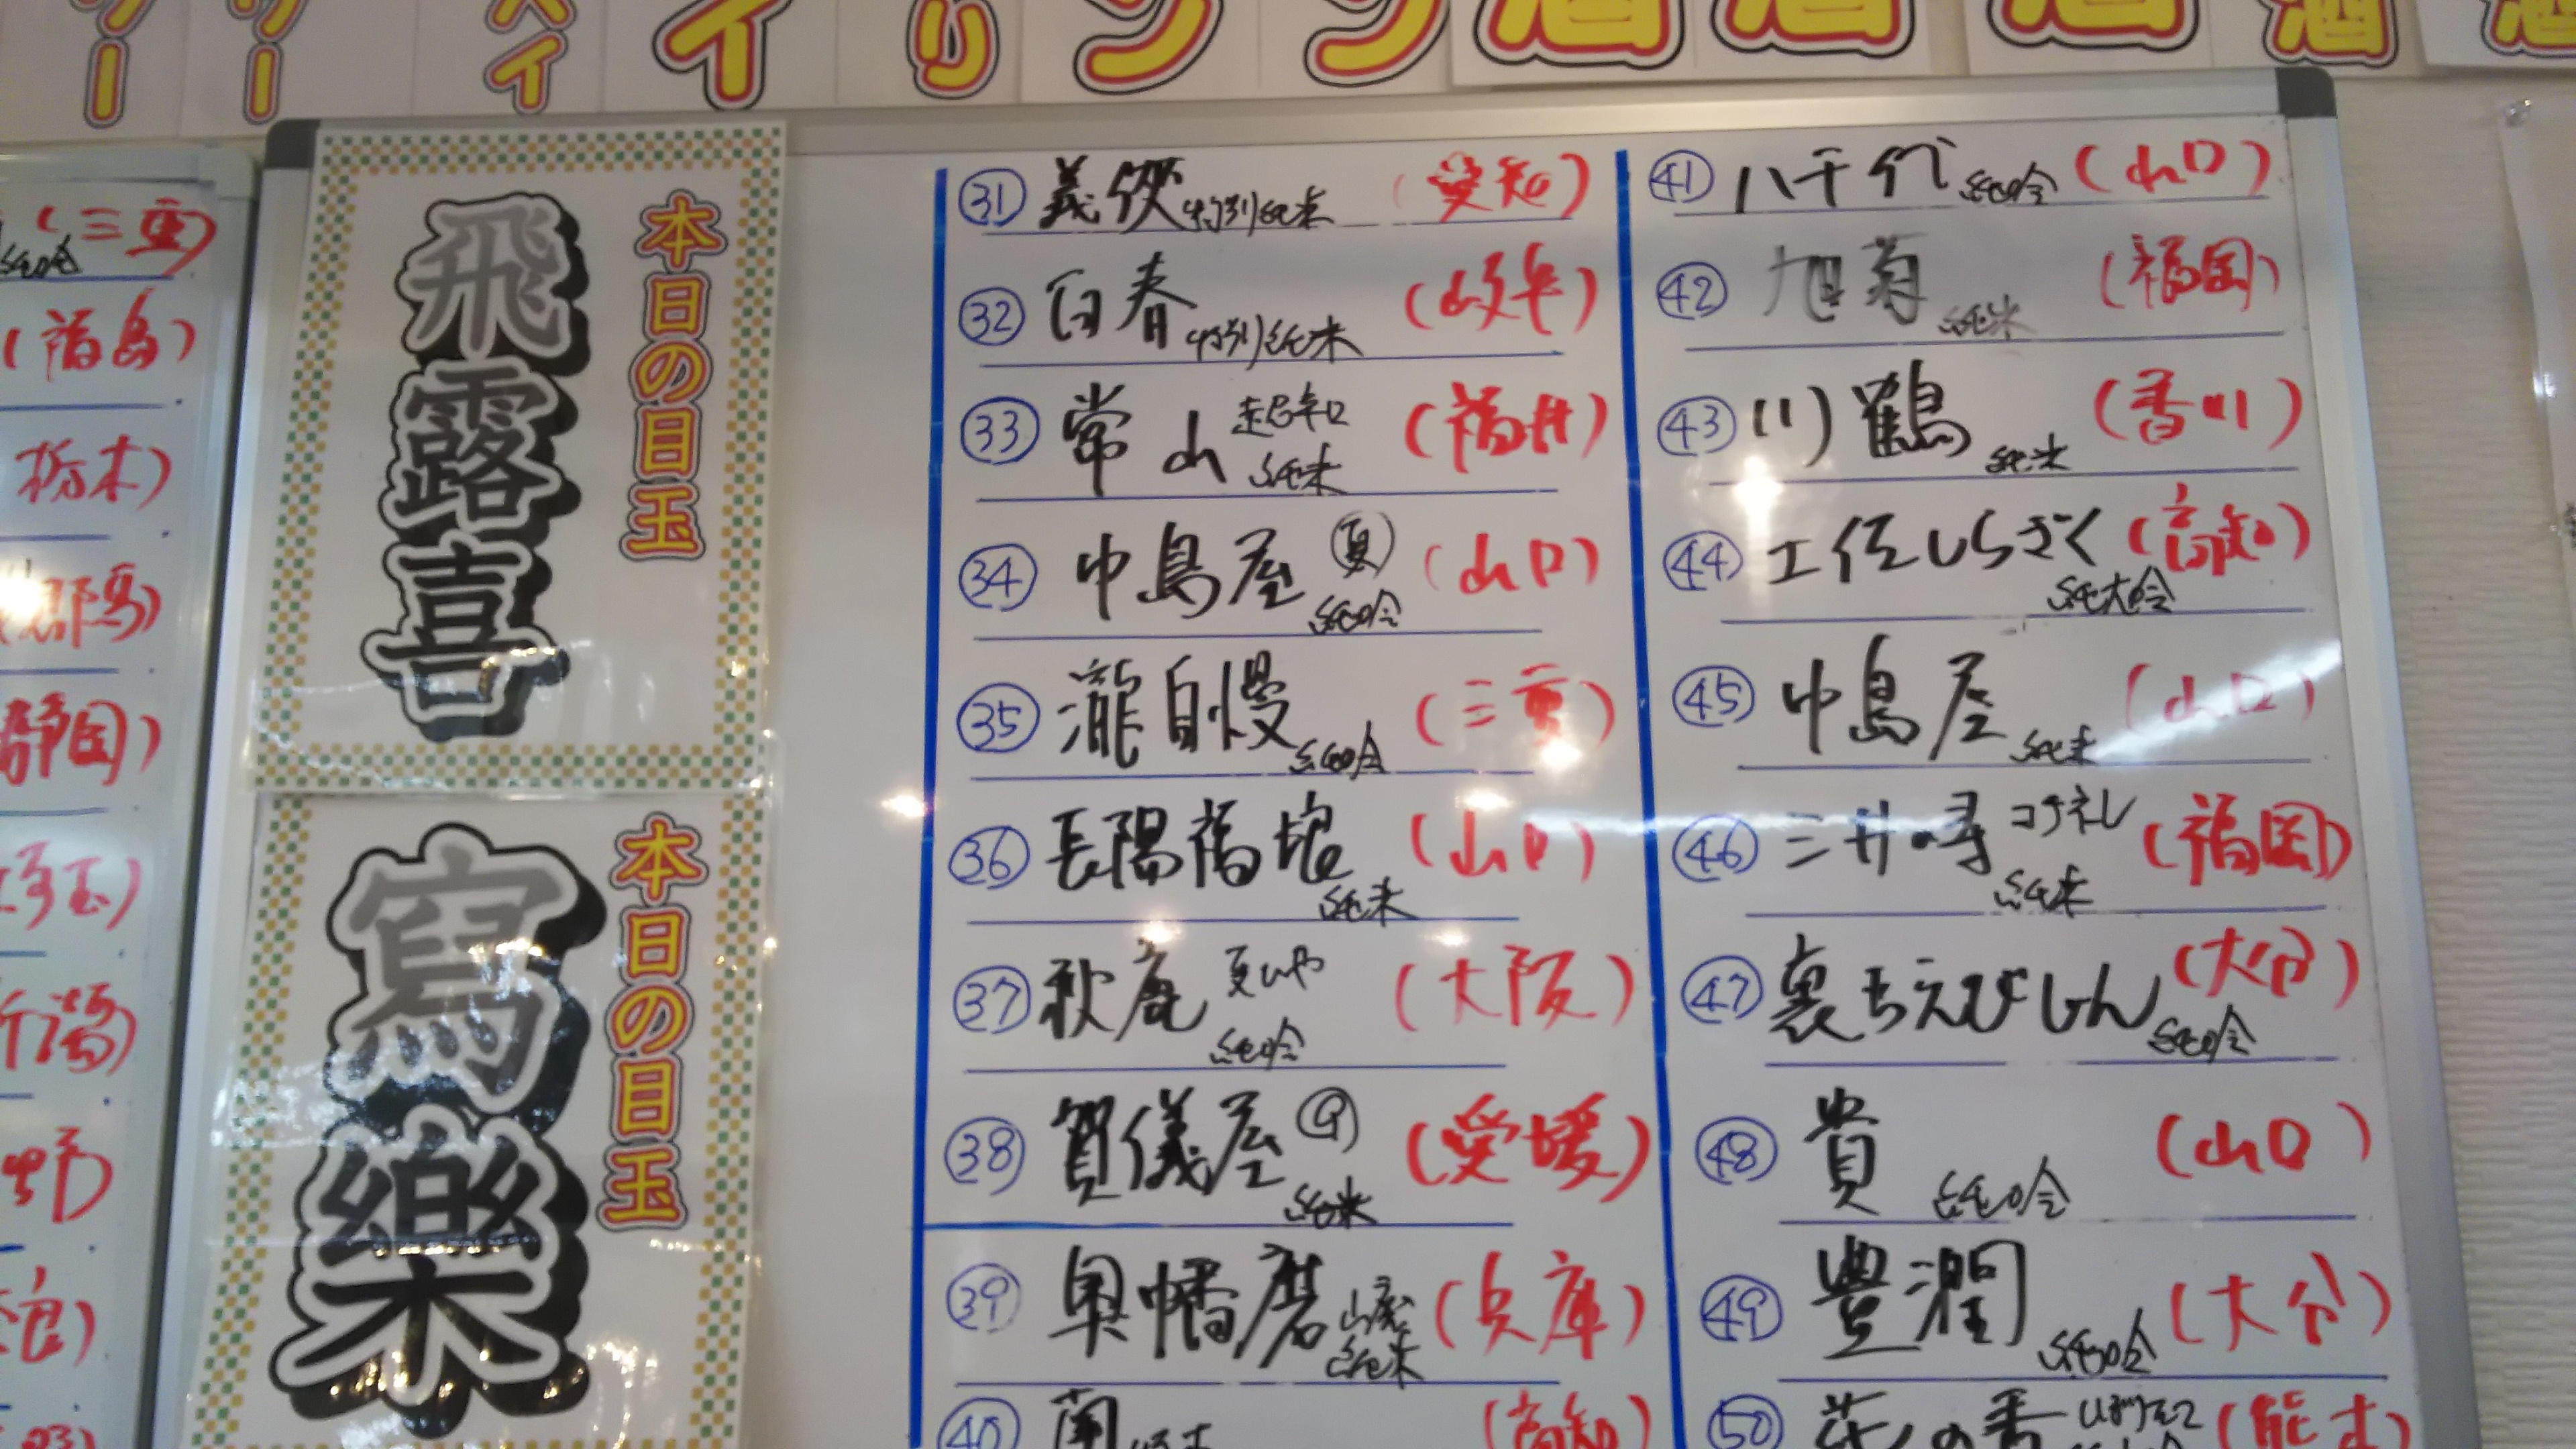 リー
リー
ハイ
イ
り
ン
ン
酒
酒
酒
酒
酒
(三重)
純吟
(福島)
栃木)
(群馬)
静岡)
埼玉)
新潟)
野)
奈良)
本日の目玉
飛露喜
本日の目玉
寫樂
㉛ 義侠 特別純米 (愛知)
㉜ 百春 特別純米 (岐阜)
㉝ 常山 超辛口 純米 (福井)
㉞ 中島屋 夏 純吟 (山口)
㉟ 瀧自慢 純吟 (三重)
㊱ 長陽福娘 純米 (山口)
㊲ 秋鹿 夏ひや 純吟 (大阪)
㊳ 賀儀屋 純米 (愛媛)
㊴ 奥播磨 山廃純米 (兵庫)
㊵ 南 (高知)
㊶ 八千代 純吟 (山口)
㊷ 旭菊 純米 (福岡)
㊸ 川鶴 純米 (香川)
㊹ 土佐しらぎく 純大吟 (高知)
㊺ 中島屋 純米 (山口)
㊻ 三井の寿 純米 (福岡)
㊼ 裏ちえびじん 純吟 (大分)
㊽ 貴 純吟 (山口)
㊾ 豊潤 純吟 (大分)
㊿ 花の香 (熊本)